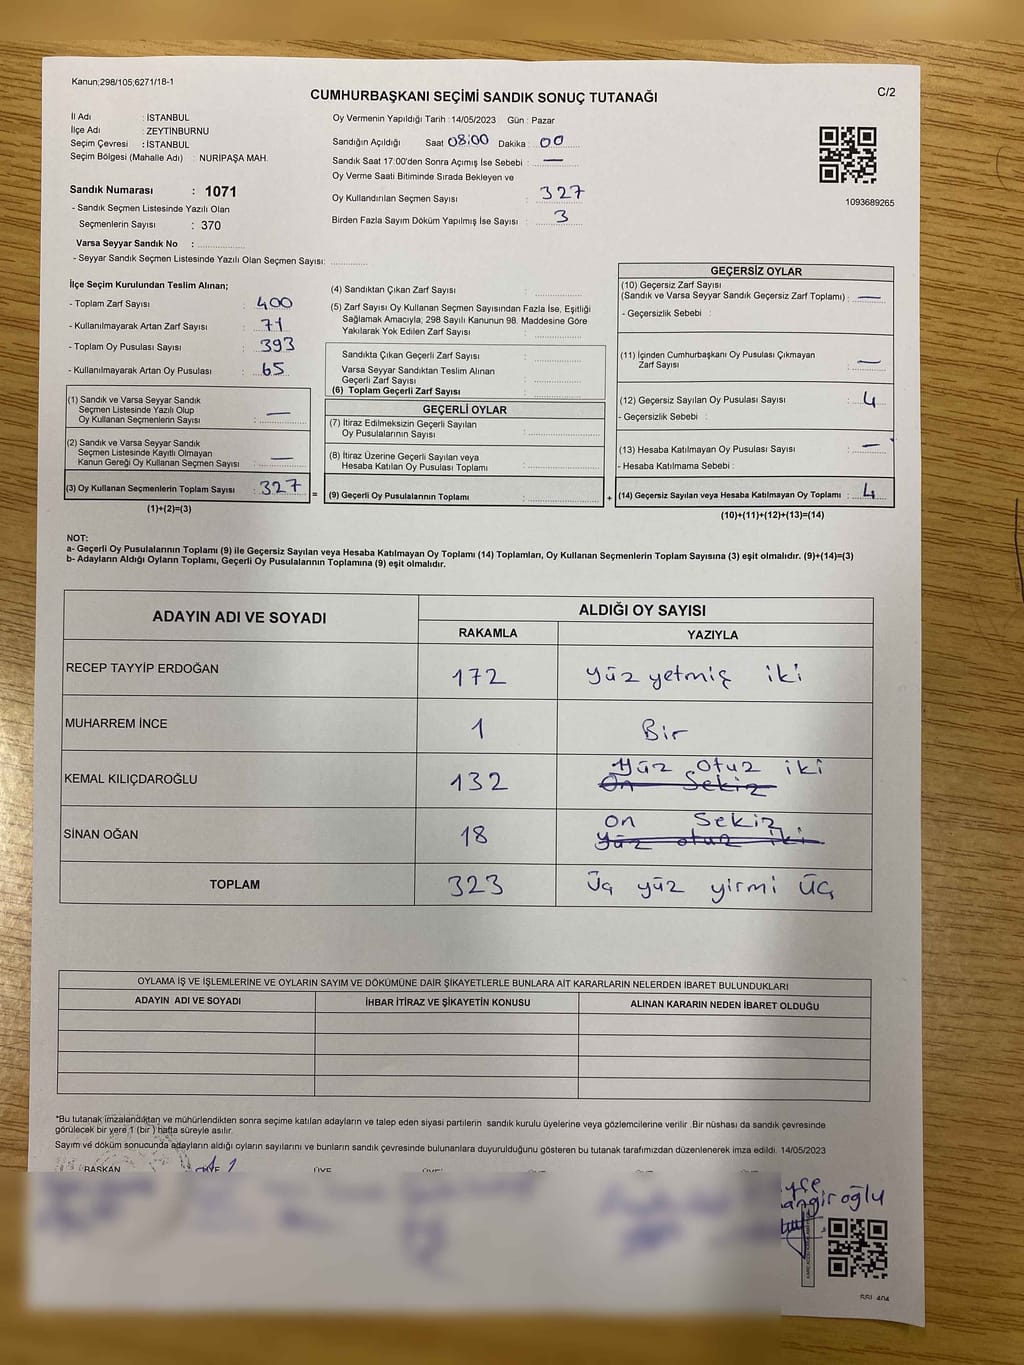 Kanun;298/105;6271/18-1
C/2
CUMHURBAŞKANI SEÇİMİ SANDIK SONUÇ TUTANAĞI
İl Adı : İSTANBUL
İlçe Adı : ZEYTİNBURNU
Seçim Çevresi : İSTANBUL
Seçim Bölgesi (Mahalle Adı) : NURİPAŞA MAH.
Sandık Numarası : 1071
- Sandık Seçmen Listesinde Yazılı Olan
Seçmenlerin Sayısı : 370
Varsa Seyyar Sandık No : ..............
- Seyyar Sandık Seçmen Listesinde Yazılı Olan Seçmen Sayısı: ..............
Oy Vermenin Yapıldığı Tarih : 14/05/2023 Gün : Pazar
Sandığın Açıldığı Saat 08:00 Dakika : 00
Sandık Saat 17:00'den Sonra Açımış İse Sebebi : —
Oy Verme Saati Bitiminde Sırada Bekleyen ve
Oy Kullandırılan Seçmen Sayısı : 327
Birden Fazla Sayım Döküm Yapılmış İse Sayısı : 3
1093689265
İlçe Seçim Kurulundan Teslim Alınan;
- Toplam Zarf Sayısı : 400
- Kullanılmayarak Artan Zarf Sayısı : 71
- Toplam Oy Pusulası Sayısı : 393
- Kullanılmayarak Artan Oy Pusulası : 65
(1) Sandık ve Varsa Seyyar Sandık
Seçmen Listesinde Yazılı Olup
Oy Kullanan Seçmenlerin Sayısı : —
(2) Sandık ve Varsa Seyyar Sandık
Seçmen Listesinde Kayıtlı Olmayan
Kanun Gereği Oy Kullanan Seçmen Sayısı : —
(3) Oy Kullanan Seçmenlerin Toplam Sayısı : 327
(1)+(2)=(3)
=
(4) Sandıktan Çıkan Zarf Sayısı : ..............
(5) Zarf Sayısı Oy Kullanan Seçmen Sayısından Fazla İse, Eşitliği
Sağlamak Amacıyla, 298 Sayılı Kanunun 98. Maddesine Göre
Yakılarak Yok Edilen Zarf Sayısı : ..............
Sandıkta Çıkan Geçerli Zarf Sayısı : ..............
Varsa Seyyar Sandıktan Teslim Alınan
Geçerli Zarf Sayısı : ..............
(6) Toplam Geçerli Zarf Sayısı
GEÇERLİ OYLAR
(7) İtiraz Edilmeksizin Geçerli Sayılan
Oy Pusulalarının Sayısı : ..............
(8) İtiraz Üzerine Geçerli Sayılan veya
Hesaba Katılan Oy Pusulası Toplamı : ..............
(9) Geçerli Oy Pusulalarının Toplamı : ..............
+
GEÇERSİZ OYLAR
(10) Geçersiz Zarf Sayısı
(Sandık ve Varsa Seyyar Sandık Geçersiz Zarf Toplamı) : —
- Geçersizlik Sebebi :
(11) İçinden Cumhurbaşkanı Oy Pusulası Çıkmayan
Zarf Sayısı : —
(12) Geçersiz Sayılan Oy Pusulası Sayısı : 4
- Geçersizlik Sebebi :
(13) Hesaba Katılmayan Oy Pusulası Sayısı : —
- Hesaba Katılmama Sebebi :
(14) Geçersiz Sayılan veya Hesaba Katılmayan Oy Toplamı : 4
(10)+(11)+(12)+(13)=(14)
NOT:
a- Geçerli Oy Pusulalarının Toplamı (9) ile Geçersiz Sayılan veya Hesaba Katılmayan Oy Toplamı (14) Toplamları, Oy Kullanan Seçmenlerin Toplam Sayısına (3) eşit olmalıdır. (9)+(14)=(3)
b- Adayların Aldığı Oyların Toplamı, Geçerli Oy Pusulalarının Toplamına (9) eşit olmalıdır.
ADAYIN ADI VE SOYADI ALDIĞI OY SAYISI
RAKAMLA YAZIYLA
RECEP TAYYİP ERDOĞAN 172 yüz yetmiş iki
MUHARREM İNCE 1 Bir
KEMAL KILIÇDAROĞLU 132 yüz otuz iki
On Sekiz
SİNAN OĞAN 18 on Sekiz
yüz otuz iki
TOPLAM 323 Üç yüz yirmi üç
OYLAMA İŞ VE İŞLEMLERİNE VE OYLARIN SAYIM VE DÖKÜMÜNE DAİR ŞİKAYETLERLE BUNLARA AİT KARARLARIN NELERDEN İBARET BULUNDUKLARI
ADAYIN ADI VE SOYADI İHBAR İTİRAZ VE ŞİKAYETİN KONUSU ALINAN KARARIN NEDEN İBARET OLDUĞU
*Bu tutanak imzalandıktan ve mühürlendikten sonra seçime katılan adayların ve talep eden siyasi partilerin sandık kurulu üyelerine veya gözlemcilerine verilir .Bir nüshası da sandık çevresinde
görülecek bir yere 1 (bir ) hafta süreyle asılır.
Sayım ve döküm sonucunda adayların aldığı oyların sayılarını ve bunların sandık çevresinde bulunanlara duyurulduğunu gösteren bu tutanak tarafımızdan düzenlenerek imza edildi. 14/05/2023
BAŞKAN ÜYE ÜYE